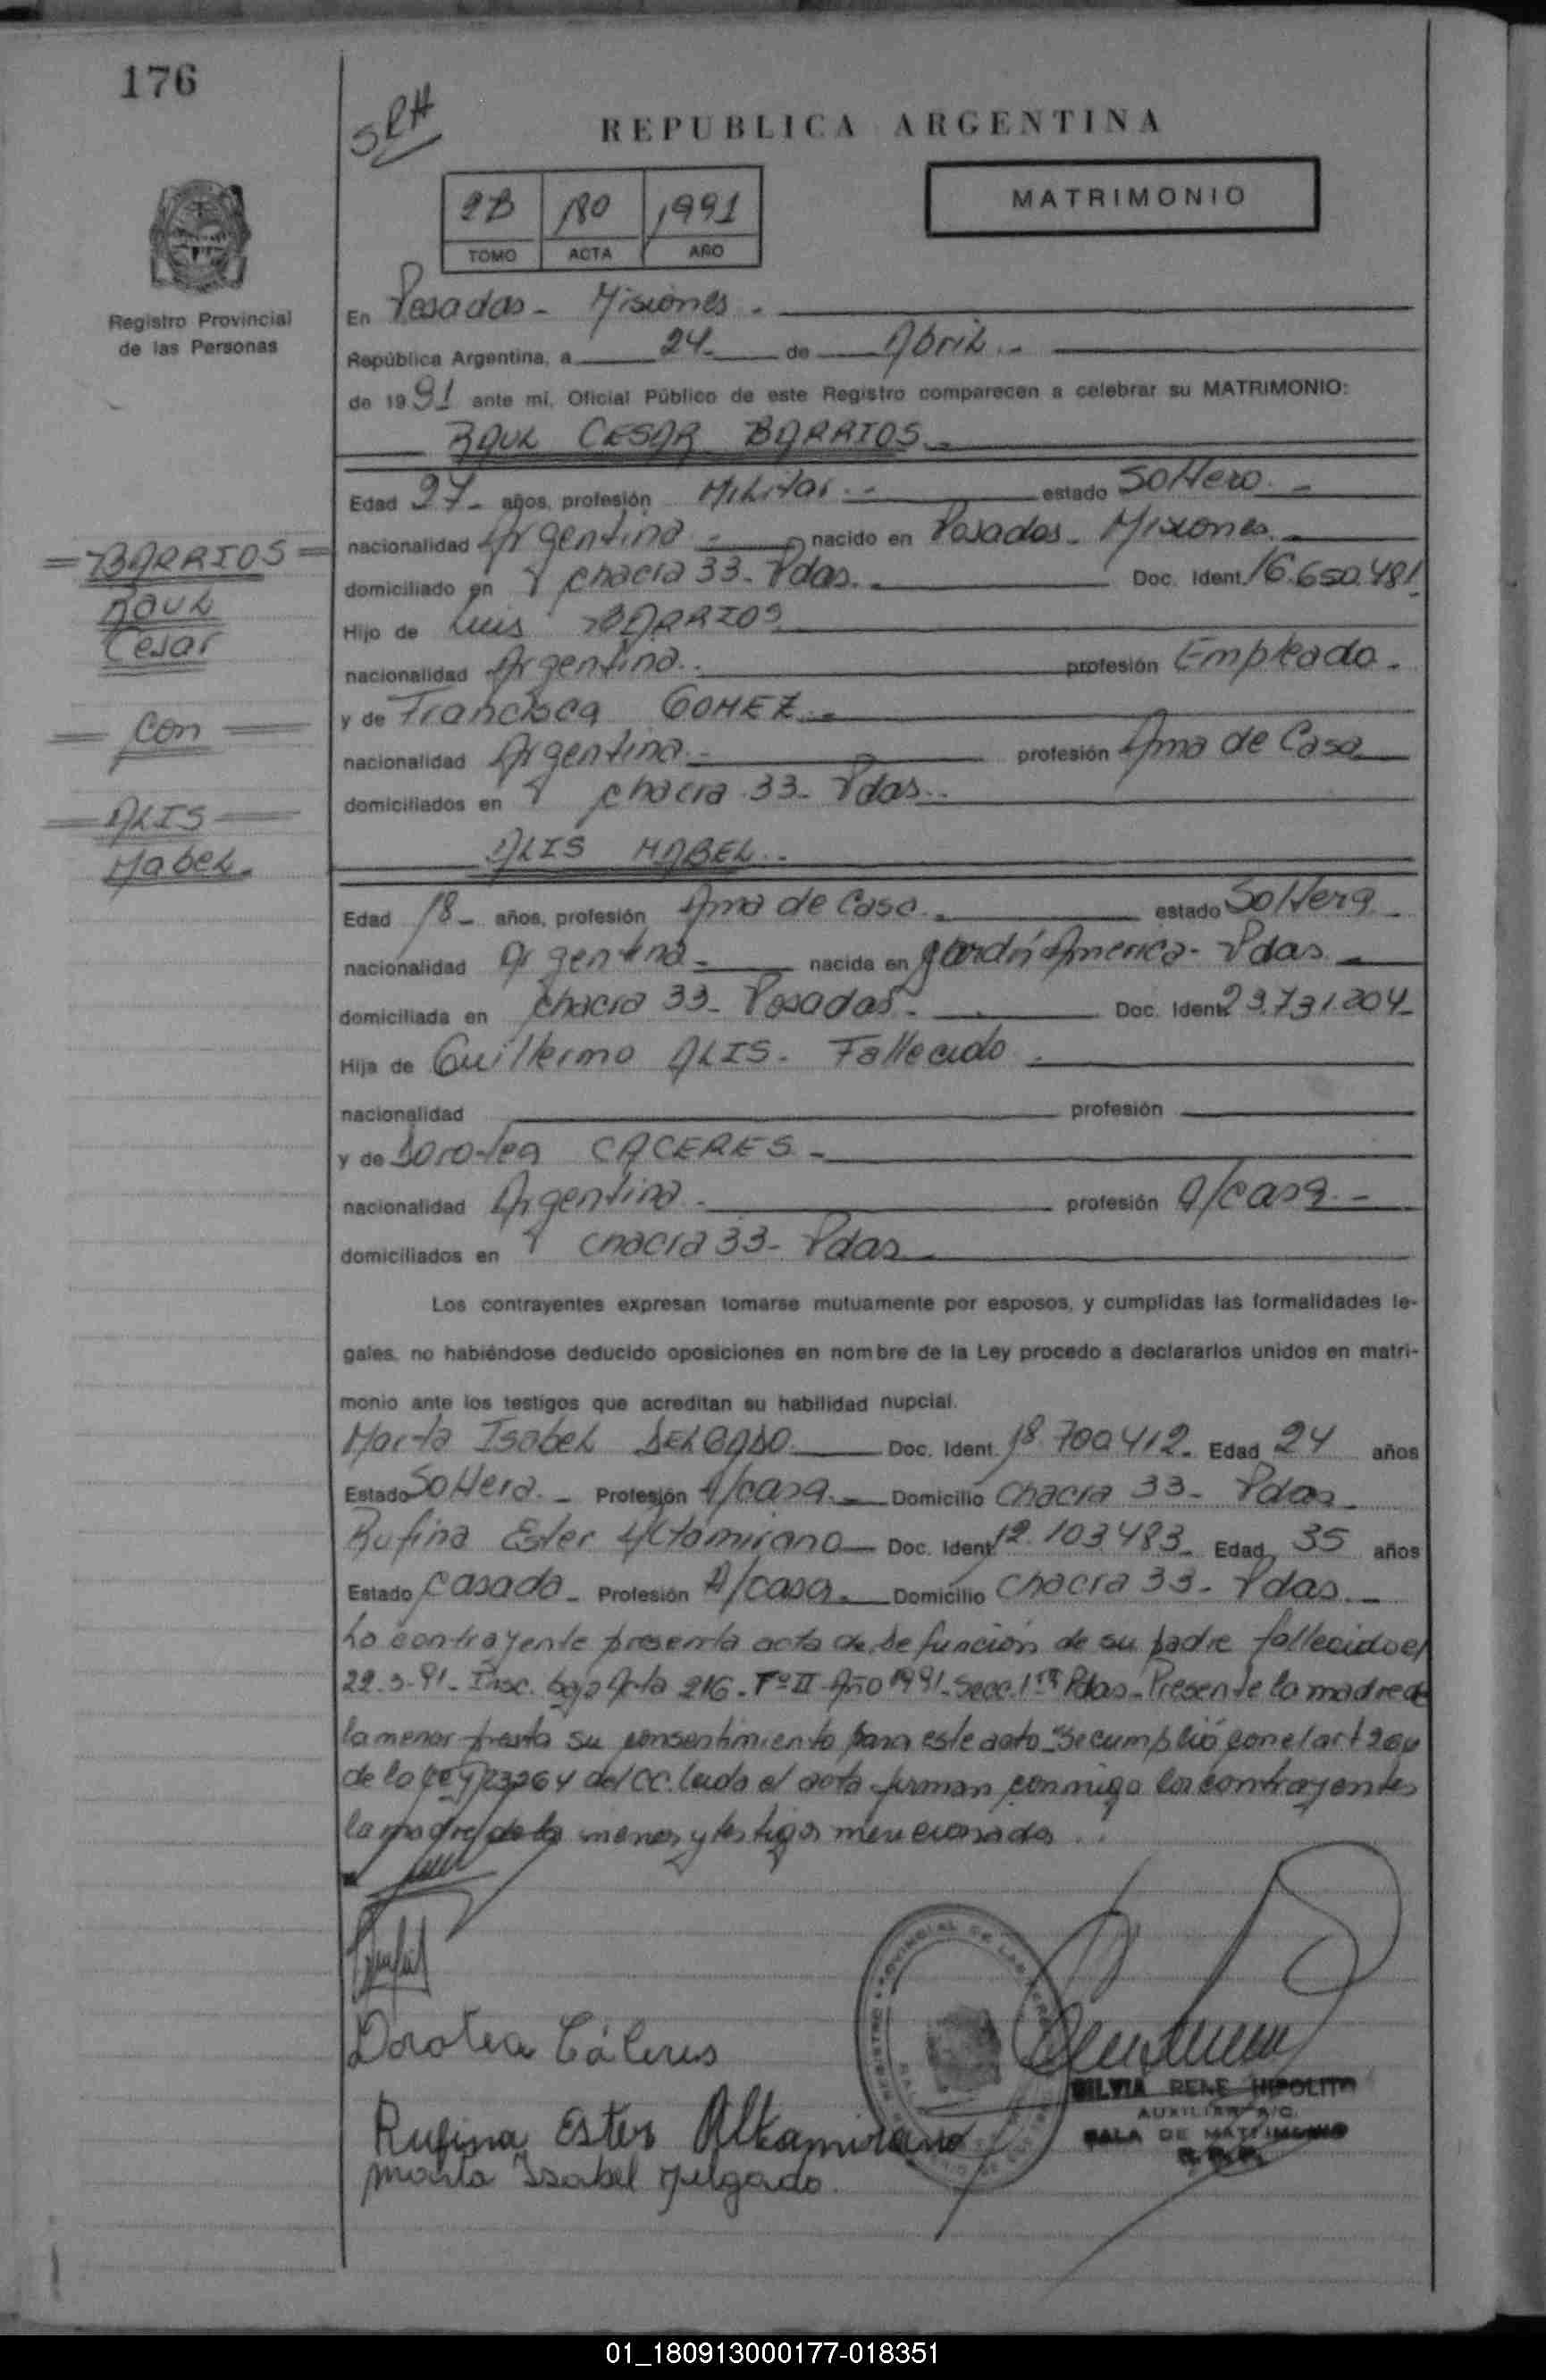 176
SRH
REPUBLICA ARGENTINA
2B 180 1991
TOMO ACTA AÑO
MATRIMONIO
Registro Provincial
de las Personas
En Posadas - Misiones -
República Argentina, a 24- de Abril.-
de 1991 ante mi, Oficial Público de este Registro comparecen a celebrar su MATRIMONIO:
RAUL CESAR BARRIOS.-
Edad 27- años, profesión Militar.- estado Soltero.-
nacionalidad Argentina.- nacido en Posadas- Misiones.-
domiciliado en chacra 33- Pdas.- Doc. Ident. 16.650.481
Hijo de Luis BARRIOS
nacionalidad Argentina.- profesión Empleado.-
y de Francisca GOMEZ.-
nacionalidad Argentina.- profesión Ama de Casa
domiciliados en chacra 33- Pdas.-
=BARRIOS=
RAUL
Cesar
= Con =
=ALIS=
Mabel.
ALIS MABEL.-
Edad 18- años, profesión Ama de Casa.- estado Soltera
nacionalidad Argentina- nacida en Jardín América- Pdas.-
domiciliada en chacra 33- Posadas.- Doc. Ident. 23.731.204-
Hija de Guillermo ALIS- Fallecido.
nacionalidad profesión
y de Dorotea CACERES.-
nacionalidad Argentina.- profesión A/casa.-
domiciliados en chacra 33- Pdas.-
Los contrayentes expresan tomarse mutuamente por esposos, y cumplidas las formalidades le-
gales, no habiéndose deducido oposiciones en nombre de la Ley procedo a declararlos unidos en matri-
monio ante los testigos que acreditan su habilidad nupcial.
Marta Isabel DELGADO. Doc. Ident. 18.700412- Edad 24 años
Estado Soltera.- Profesión A/casa.- Domicilio Chacra 33- Pdas-
Rufina Ester Altamirano Doc. Ident. 12.103483- Edad 35 años
Estado casada- Profesión A/casa.- Domicilio Chacra 33- Pdas.-
La contrayente presenta acta de defunción de su padre fallecido el
22-3-91- Insc. bajo Acta 216- Tº II- Año 1991- Secc. 1ra Pdas- Presente la madre de
la menor presta su consentimiento para este acto- Se cumplió con el art
de la ley 23264 del CC. leida el acta firman conmigo los contrayentes
la madre de la menor y testigos mencionados..
Dorotea Cáceres
Rufina Ester Altamirano
Marta Isabel Delgado.
REGISTRO PROVINCIAL DE LAS PERSONAS
SILVIA RENE HIPOLITO
AUXILIAR A/C.
SALA DE MATRIMONIO
01_180913000177-018351